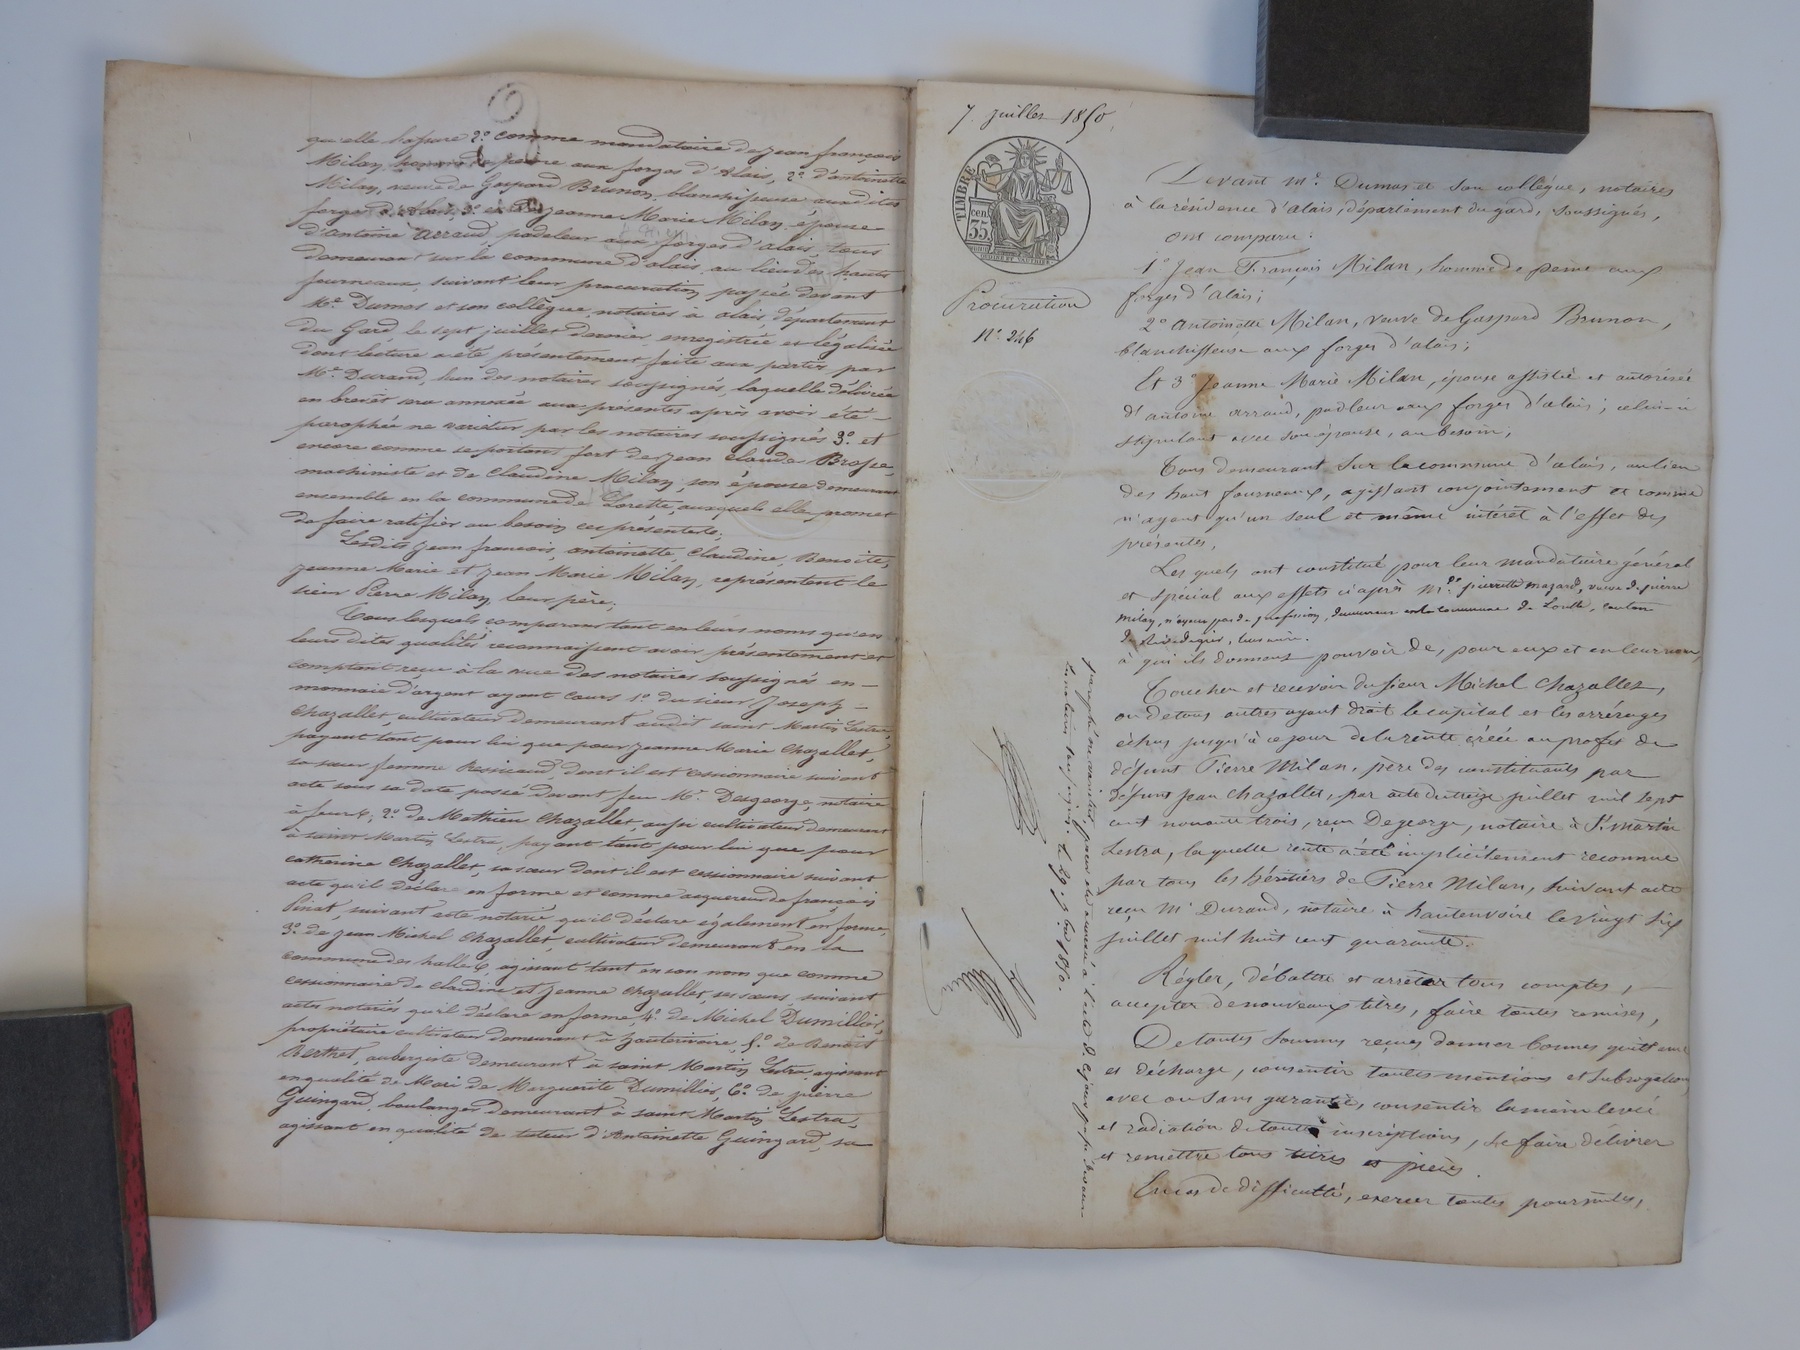 qu'elle hassure 2º comme mandataire de jean françois
Milan, homme de peine aux forges d'Alais, 2º d'antoinette
Milan, veuve de Gaspard Brunon, blanchisseuse auxdites
forges d'Alais, 3º et de jeanne Marie Milan, épouse
d'antoine arraud, padeleur aux forges d'alais, tous
demeurant sur la commune d'alais au lieu des hauts
fourneaux, suivant leur procuration passée devant
Me. Dumas et son collègue, notaires à alais, département
du Gard le sept juillet dernier, enregistrée et légalisée
dont lecture a été présentement faite aux parties par
Me. Durand, l'un des notaires soussignés, laquelle délivrée
en brevet sera annexée aux présentes après avoir été
paraphée ne varietur par les notaires soussignés 3º. et
encore comme se portant fort de jean Claude Brosse
machiniste et de Claudine Milan, son épouse demeurant
ensemble en la commune de Lorette, auxquels elle promet
de faire ratifier au besoin ces présentes;
Lesdits jean françois, antoinette, Claudine, Benoite,
jeanne Marie et jean Marie Milan, représentent le
sieur Pierre Milan leur père;
Tous lesquels comparans tant en leurs noms qu'en
leurs dites qualités reconnaissent avoir présentement et
comptant reçu à la vue des notaires soussignés en
monnaie d'argent ayant cours 1º. du sieur Joseph
Chazallet, cultivateur demeurant audit saint Martin Lestra,
payant tant pour lui que pour jeanne Marie Chazallet,
sa sœur femme dont il est cessionnaire suivant
acte sous sa date passé devant feu Me. Desgeorge, notaire
à feurs; 2º. de Mathieu Chazallet, aussi cultivateur demeurant
à saint Martin Lestra, payant tant pour lui que pour
catherine Chazallet, sa sœur dont il est cessionnaire suivant
acte qu'il déclare en forme et comme acquereur de françois
Pinat, suivant acte notarié qu'il déclare également en forme,
3º. de jean Michel Chazallet, cultivateur demeurant en la
commune des halles, agissant tant en son nom que comme
cessionnaire de claudine et jeanne chazallet, ses sœurs, suivant
actes notariés qu'il déclare en forme, 4º. de Michel Dumillier,
propriétaire cultivateur demeurant à hauterivoire, 5º. de Benoit
Berthet, aubergiste demeurant à saint Martin Lestra agissant
en qualité de Mari de Marguerite Dumillier, 6º. de pierre
Guingard, boulanger demeurant à saint Martin Lestra,
agissant en qualité de tuteur d'Antoinette Guingard, sa
7. juillet 1850
TIMBRE
cen. 35
Procuration
Nº. 246
Devant Me. Dumas et son collègue, notaires
à la résidence d'alais, département du gard, soussignés,
ont comparu:
1º Jean François Milan, homme de peine aux
forges d'Alais;
2º Antoinette Milan, veuve de Gaspard Brunon,
blanchisseuse aux forges d'alais;
Et 3º Jeanne Marie Milan, épouse assistée et autorisée
d'antoine arraud, padleur aux forges d'alais; celui-ci
stipulant avec son épouse, au besoin;
Tous demeurant sur la commune d'alais, au lieu
des haut fourneaux, agissant conjointement et comme
n'ayant qu'un seul et même intérêt à l'effet des
présentes,
Lesquels ont constitué pour leur mandataire général
et spécial aux effets ci après Me. pierrette mazard, veuve de pierre
Milan, n'ayant pas de profession, demeurant en la commune de Lorette, canton
de Rive de gier, leur mère.
à qui ils donnent pouvoir de, pour eux et en leur nom,
Toucher et recevoir du sieur Michel Chazallet,
ou de tous autres ayant droit le capital et les arrérages
échus jusqu'à ce jour de la rente créée au profit de
défunt Pierre Milan, père des constituants par
défunt jean Chazallet, par acte du treize juillet mil sept
cent nonante trois, reçu Degeorge, notaire à St. Martin
Lestra, laquelle rente a été implicitement reconnue
par tous les héritiers de Pierre Milan, suivant acte
reçu Me Durand, notaire à hauterivoire le vingt six
juillet mil huit cent quarante.
Régler, débattre et arrêter tous comptes,
accepter de nouveaux titres, faire toutes remises,
De toutes sommes reçues donner bonnes quittance
et décharge, consentir toutes mentions et subrogations
avec ou sans garantie, consentir la main levée
et radiation de toutes inscriptions, se faire délivrer
et remettre tous titres et pièces.
En cas de difficulté, exercer toutes poursuites,
paraphé ne varietur, pour être annexé à l'acte de ce jour passé devant
les notaires soussignés. Le 29 7bre 1850.